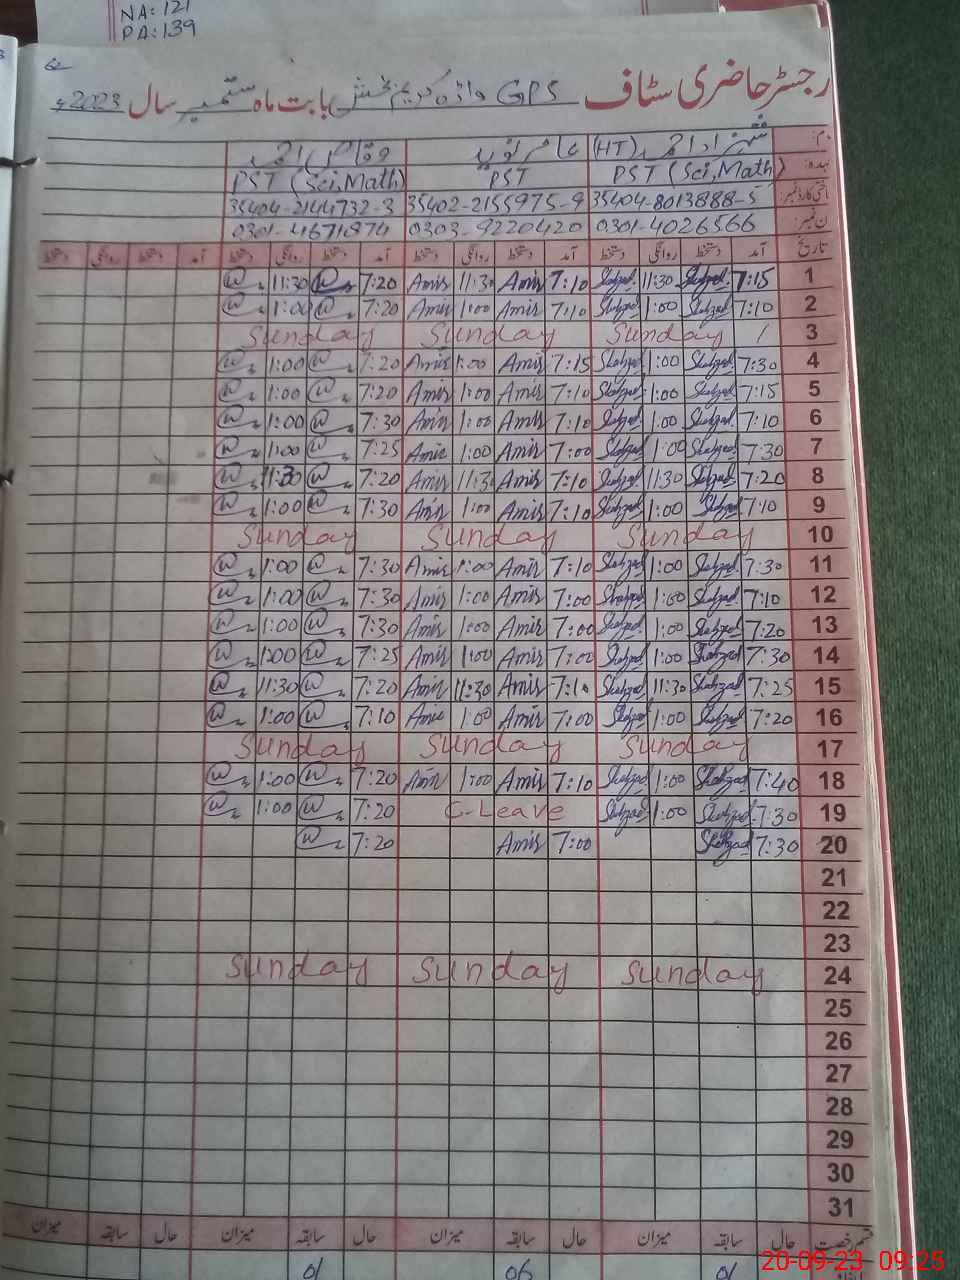 NA: 121
PA: 139
62
رجسٹر حاضری سٹاف GPS واڑہ کریم بخش بابت ماہ ستمبر سال 2023ء
شہزاد احمد (HT) عامر نوید وقاص احمد
عہدہ: PST (Sci, Math) PST PST (Sci, Math)
شناختی کارڈ نمبر: 35404-8013888-5 35402-2155975-9 35404-2144732-3
فون نمبر: 0301-4026566 0303-9220420 0301-4671874
تاریخ آمد دستخط روانگی دستخط آمد دستخط روانگی دستخط آمد دستخط روانگی دستخط آمد دستخط روانگی دستخط
1 7:15 Shahzad 11:30 Shahzad 7:10 Amir 11:30 Amir 7:20 W 11:30 W
2 7:10 Shahzad 1:00 Shahzad 7:10 Amir 1:00 Amir 7:20 W 1:00 W
3 Sunday Sunday Sunday
4 7:30 Shahzad 1:00 Shahzad 7:15 Amir 1:00 Amir 7:20 W 1:00 W
5 7:15 Shahzad 1:00 Shahzad 7:10 Amir 1:00 Amir 7:20 W 1:00 W
6 7:10 Shahzad 1:00 Shahzad 7:10 Amir 1:00 Amir 7:30 W 1:00 W
7 7:30 Shahzad 1:00 Shahzad 7:00 Amir 1:00 Amir 7:25 W 1:00 W
8 7:20 Shahzad 11:30 Shahzad 7:10 Amir 11:30 Amir 7:20 W 11:30 W
9 7:10 Shahzad 1:00 Shahzad 7:10 Amir 1:00 Amir 7:30 W 1:00 W
10 Sunday Sunday Sunday
11 7:30 Shahzad 1:00 Shahzad 7:10 Amir 1:00 Amir 7:30 W 1:00 W
12 7:10 Shahzad 1:00 Shahzad 7:00 Amir 1:00 Amir 7:30 W 1:00 W
13 7:20 Shahzad 1:00 Shahzad 7:00 Amir 1:00 Amir 7:30 W 1:00 W
14 7:30 Shahzad 1:00 Shahzad 7:00 Amir 1:00 Amir 7:25 W 1:00 W
15 7:25 Shahzad 11:30 Shahzad 7:10 Amir 11:30 Amir 7:20 W 11:30 W
16 7:20 Shahzad 1:00 Shahzad 7:00 Amir 1:00 Amir 7:10 W 1:00 W
17 Sunday Sunday Sunday
18 7:40 Shahzad 1:00 Shahzad 7:10 Amir 1:00 Amir 7:20 W 1:00 W
19 7:30 Shahzad 1:00 Shahzad C-Leave 7:20 W 1:00 W
20 7:30 Shahzad 7:00 Amir 7:20 W
21
22
23
24 Sunday Sunday Sunday
25
26
27
28
29
30
31
قسم رخصت حال سابقہ میزان حال سابقہ میزان حال سابقہ میزان حال سابقہ میزان
01 06 01
20-09-23 09:25